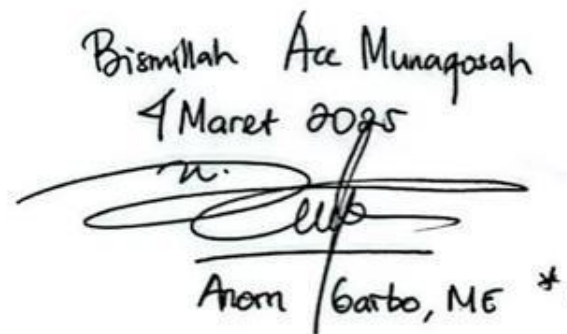 Bismillah Acc Munaqosah
4 Maret 2025
Anom Garbo, ME *